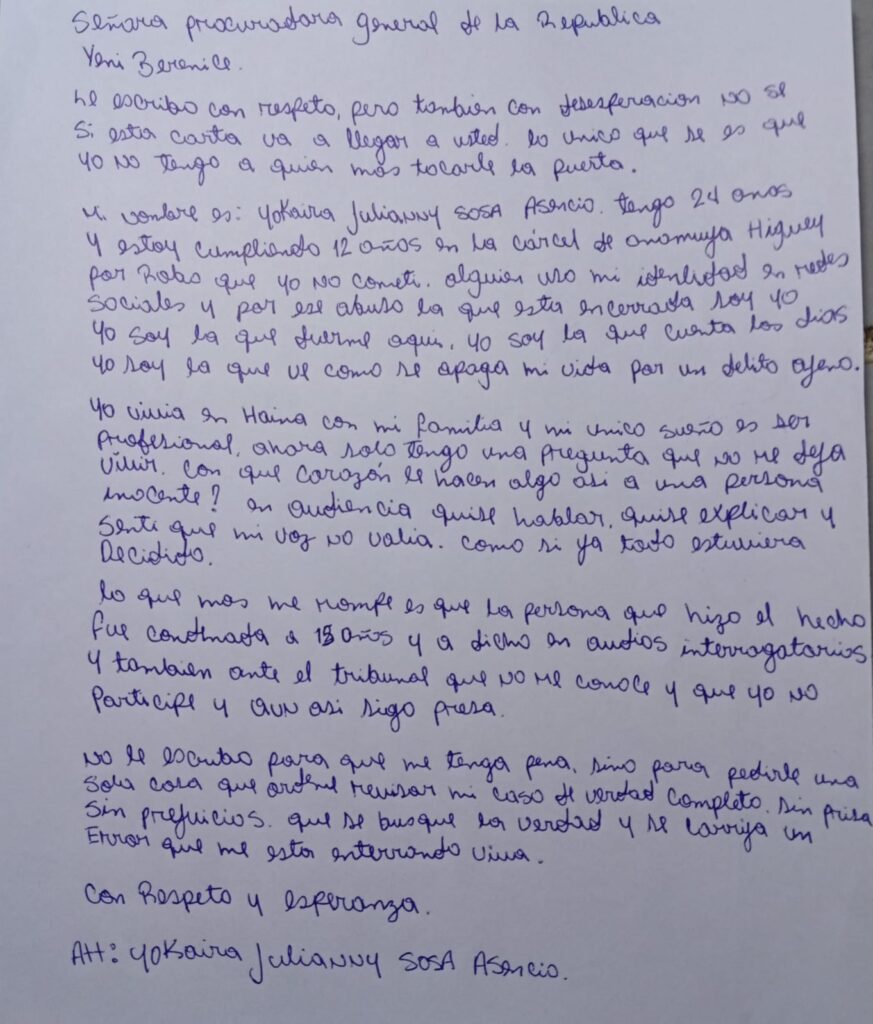 Señora procuradora general de la Republica
Yeni Berenice.
Le escribo con respeto, pero tambien con desesperacion NO se
Si esta carta va a llegar a usted. lo unico que se es que
yo NO tengo a quien más tocarle la puerta.
Mi nombre es: Yokaira Julianny Sosa Asencio. tengo 24 anos
Y estoy cumpliendo 12 años en la cárcel de anamuya Higuey
por Robo que yo NO cometi. alguien uso mi identidad en redes
Sociales y por ese abuso la que esta encerrada soy yo
Yo soy la que duerme aqui, yo soy la que cuenta los dias
Yo soy la que ve como se apaga mi vida por un delito ajeno.
Yo vivia en Haina con mi familia y mi unico sueño es ser
Profesional, ahora solo tengo una pregunta que no me deja
Vivir. con que corazón le hacen algo asi a una persona
inocente? en audiencia quise hablar, quise explicar y
Senti que mi voz NO valia. como si ya todo estuviera
Decidido.
lo que mas me rompe es que la persona que hizo el hecho
fue condenada a 15 años y a dicho en audios interrogatorios
Y tambien ante el tribunal que NO Me conoce y que yo NO
Participe y aun asi sigo presa.
No le escribo para que me tenga pena, sino para pedirle una
Sola cosa que ordene revisar mi caso de verdad completo. sin prisa
Sin prejuicios. que se busque la verdad y se corrija un
Error que me esta enterrando viva.
Con Respeto y esperanza.
Att: Yokaira Julianny Sosa Asencio.